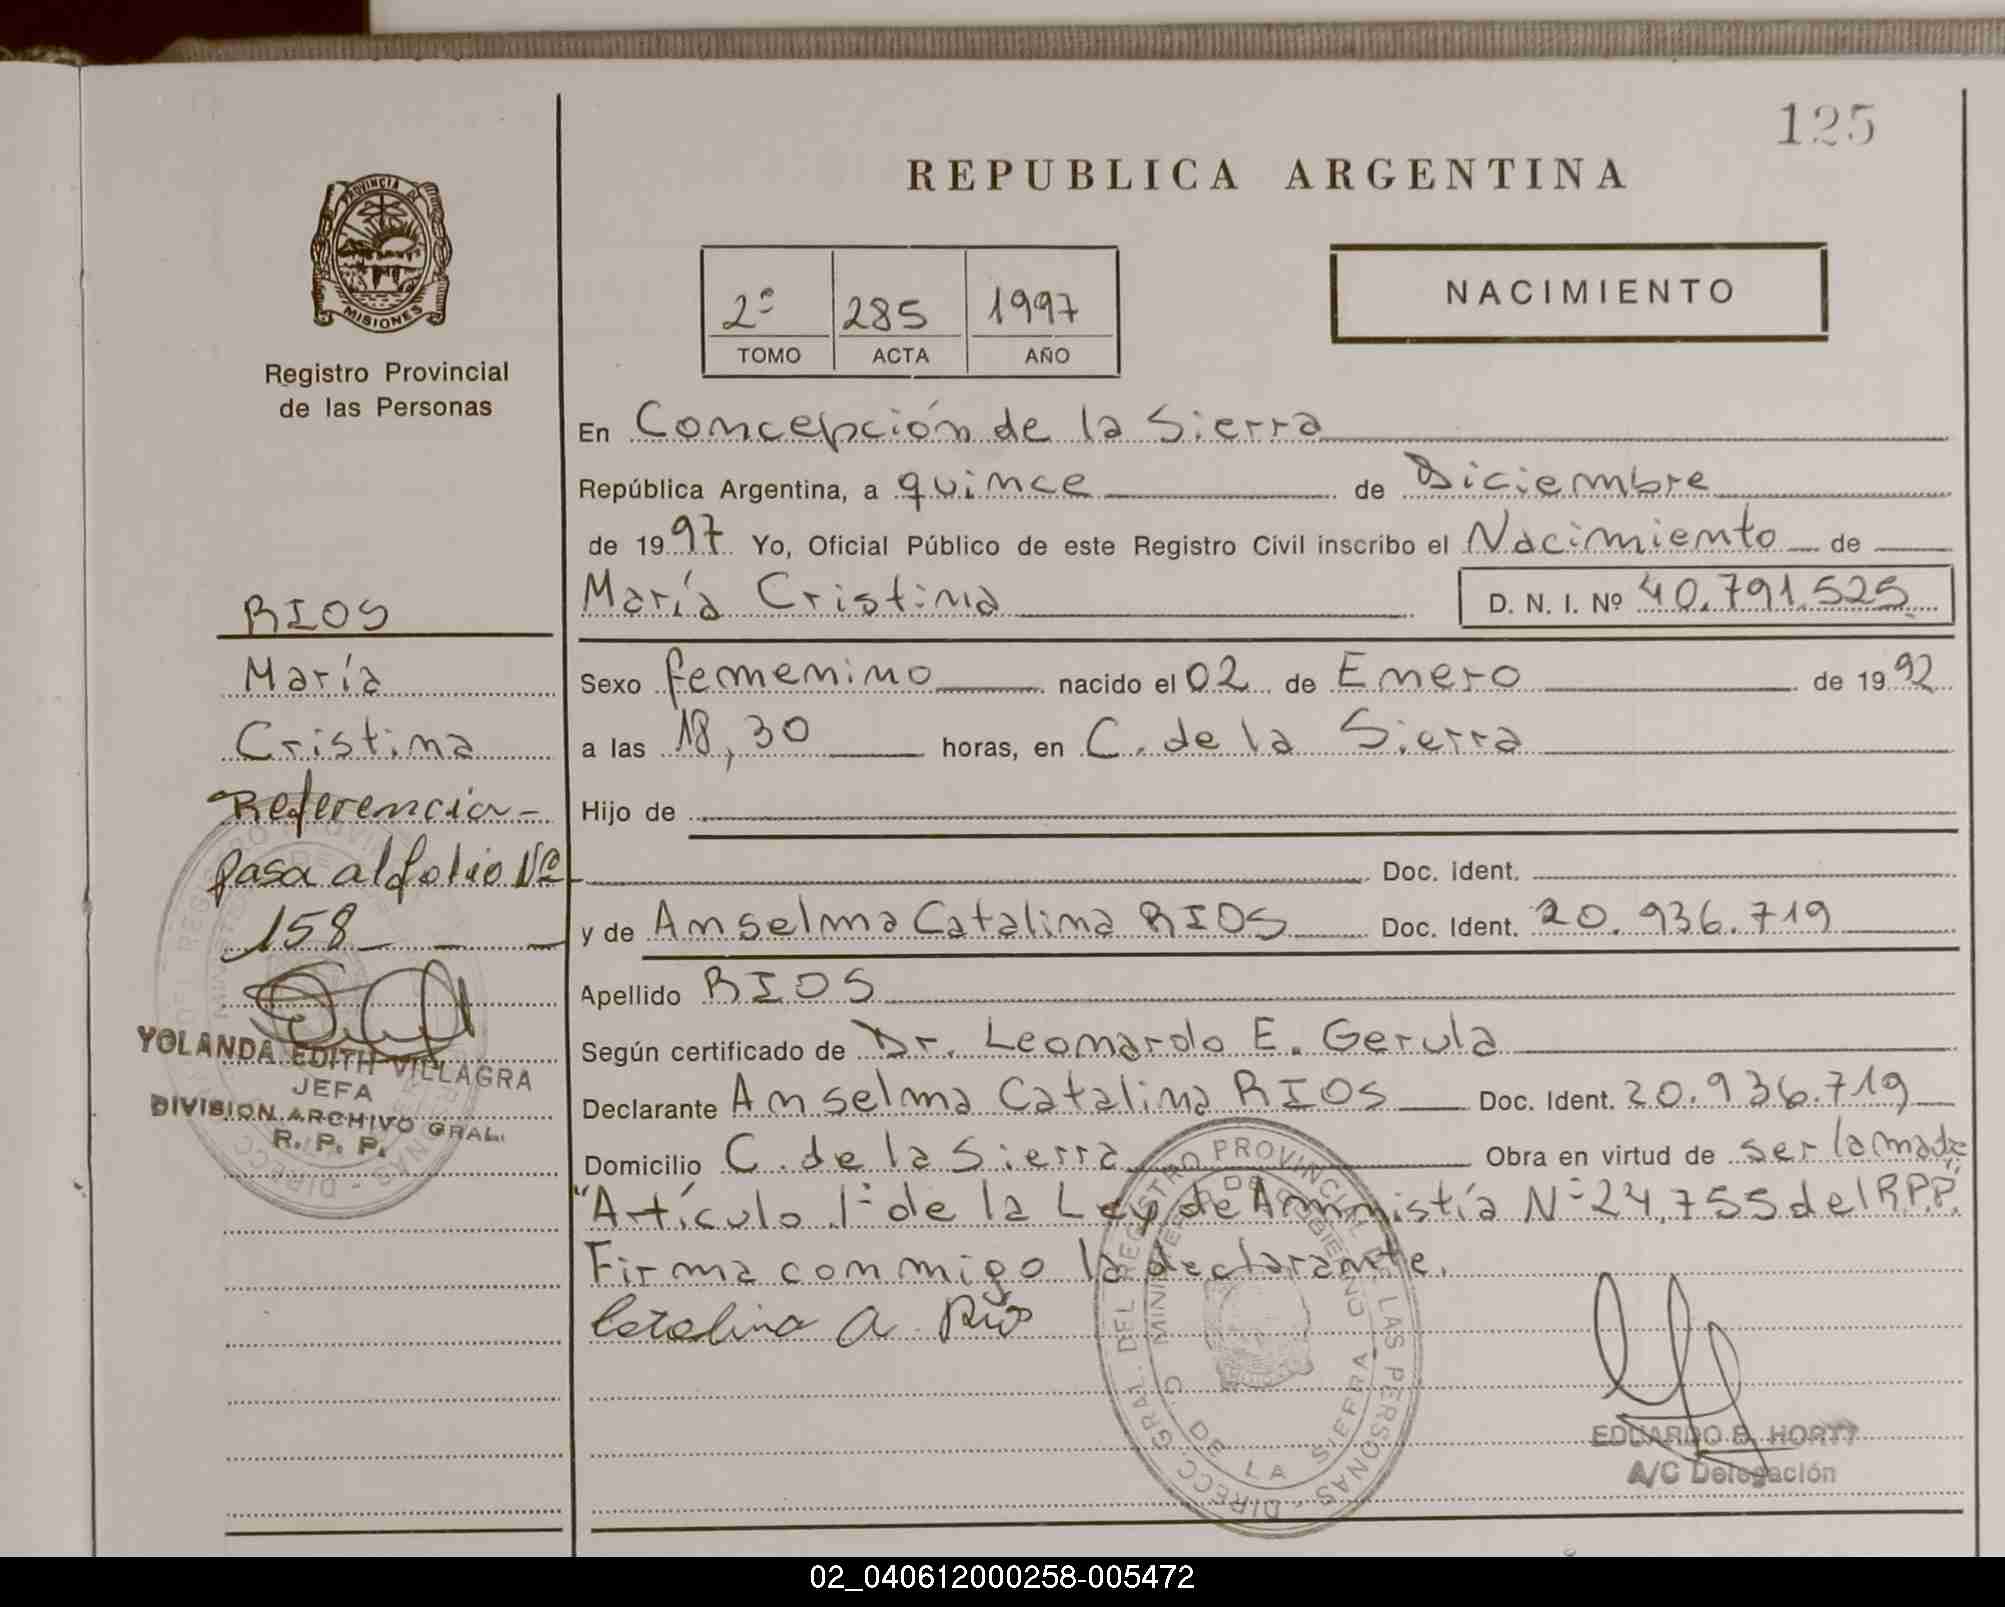 125
REPUBLICA ARGENTINA
PROVINCIA DE
MISIONES
Registro Provincial
de las Personas
2º 285 1997
TOMO ACTA AÑO
NACIMIENTO
En Concepción de la Sierra
República Argentina, a quince de Diciembre
de 1997 Yo, Oficial Público de este Registro Civil inscribo el Nacimiento de
María Cristina D. N. I. Nº 40.791.525
RIOS
María
Cristina
Referencia-
pasa al folio Nº
158
YOLANDA EDITH VILLAGRA
JEFA
DIVISION ARCHIVO GRAL.
R. P. P.
Sexo femenino nacido el 02 de Enero de 1992
a las 18,30 horas, en C. de la Sierra
Hijo de
Doc. Ident.
y de Anselma Catalina RIOS Doc. Ident. 20.936.719
Apellido RIOS
Según certificado de Dr. Leonardo E. Gerula
Declarante Anselma Catalina RIOS Doc. Ident. 20.936.719
Domicilio C. de la Sierra Obra en virtud de ser la madre
"Artículo 1º de la Ley de Amnistía Nº 24.755 del R.P.P."
Firma conmigo la declarante.
Catalina A Rios
DIRECC GRAL. DEL REGISTRO PROVINCIAL DE LAS PERSONAS
MINISTERIO DE GOBIERNO
C. DE LA SIERRA
EDUARDO B. HORTT
A/C Delegación
02_040612000258-005472